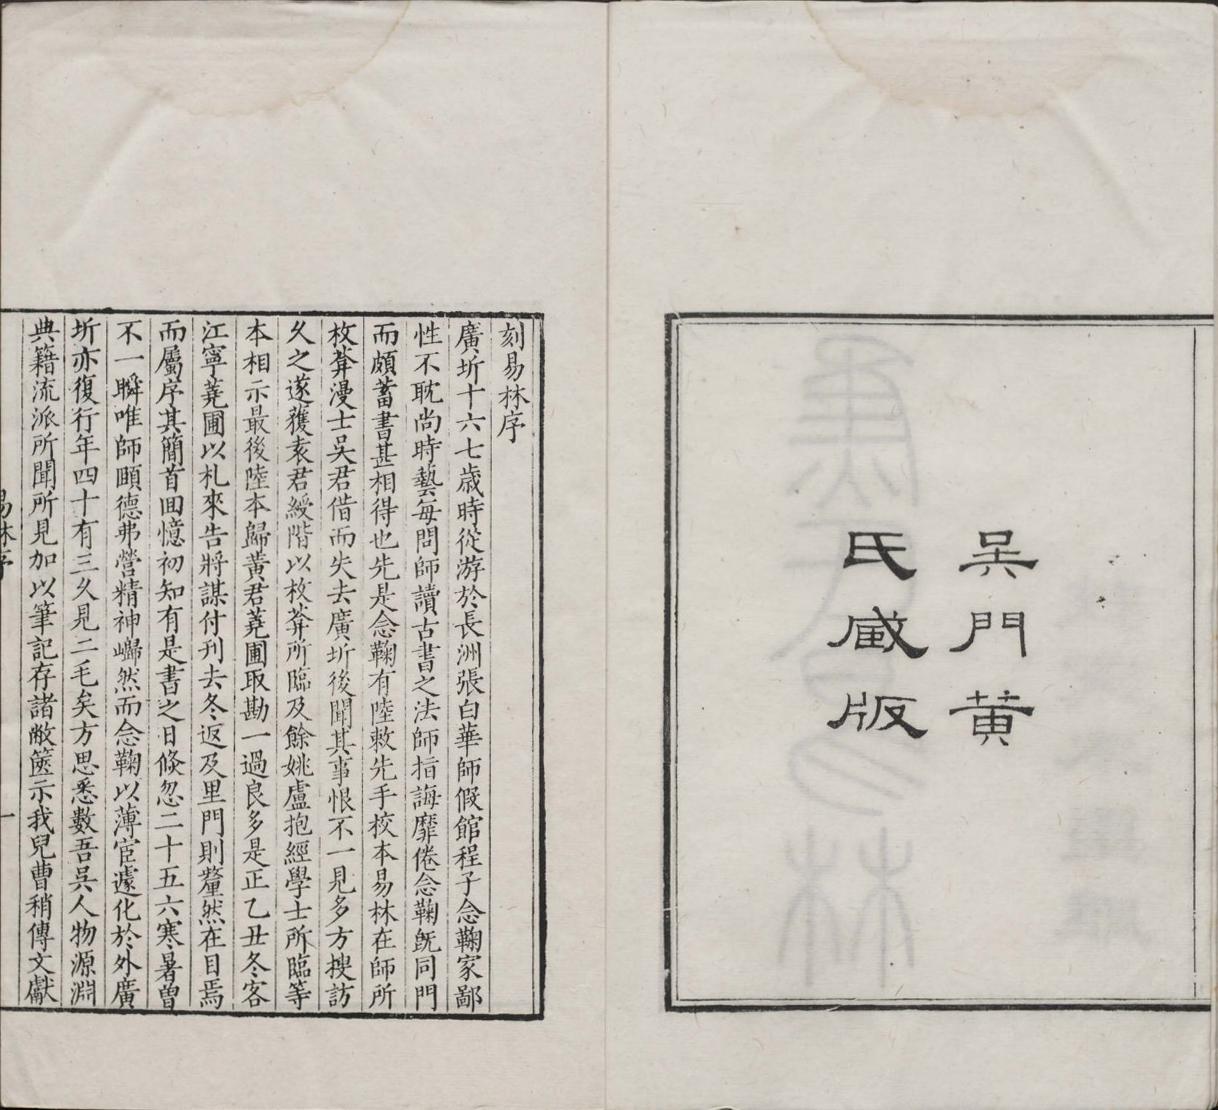 吴門黄
氏臧版
刻易林序
廣圻十六七歲時從游於長洲張白華師假館程子念鞠家鄙
性不耽尚時藝每問師讀古書之法師指誨靡倦念鞠旣同門
而頗蓄書甚相得也先是念鞠有陸敕先手校本易林在師所
枚葊漫士吴君借而失去廣圻後聞其事恨不一見多方搜訪
久之遂獲袁君綬階以枚葊所臨及餘姚盧抱經學士所臨等
本相示最後陸本歸黃君蕘圃取勘一過良多是正乙丑冬客
江寧蕘圃以札來告將謀付刊去冬返及里門則釐然在目焉
而屬序其簡首回憶初知有是書之日倏忽二十五六寒暑曾
不一瞬唯師頤德弗營精神巋然而念鞠以薄宦遽化於外廣
圻亦復行年四十有三久見二毛矣方思悉數吾吴人物源淵
典籍流派所聞所見加以筆記存諸敝篋示我兒曹稍傳文獻
易林序
一